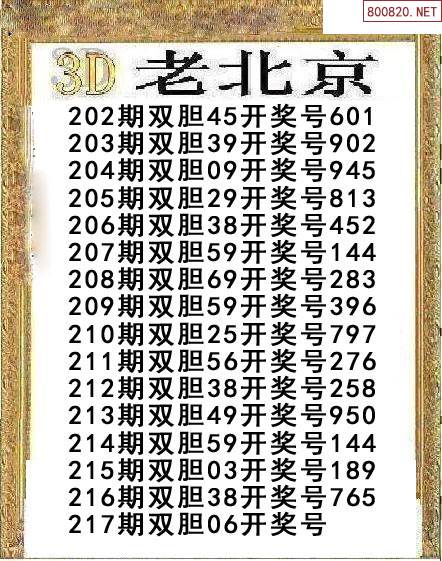 800820.NET
3D 老北京
202期双胆45开奖号601
203期双胆39开奖号902
204期双胆09开奖号945
205期双胆29开奖号813
206期双胆38开奖号452
207期双胆59开奖号144
208期双胆69开奖号283
209期双胆59开奖号396
210期双胆25开奖号797
211期双胆56开奖号276
212期双胆38开奖号258
213期双胆49开奖号950
214期双胆59开奖号144
215期双胆03开奖号189
216期双胆38开奖号765
217期双胆06开奖号